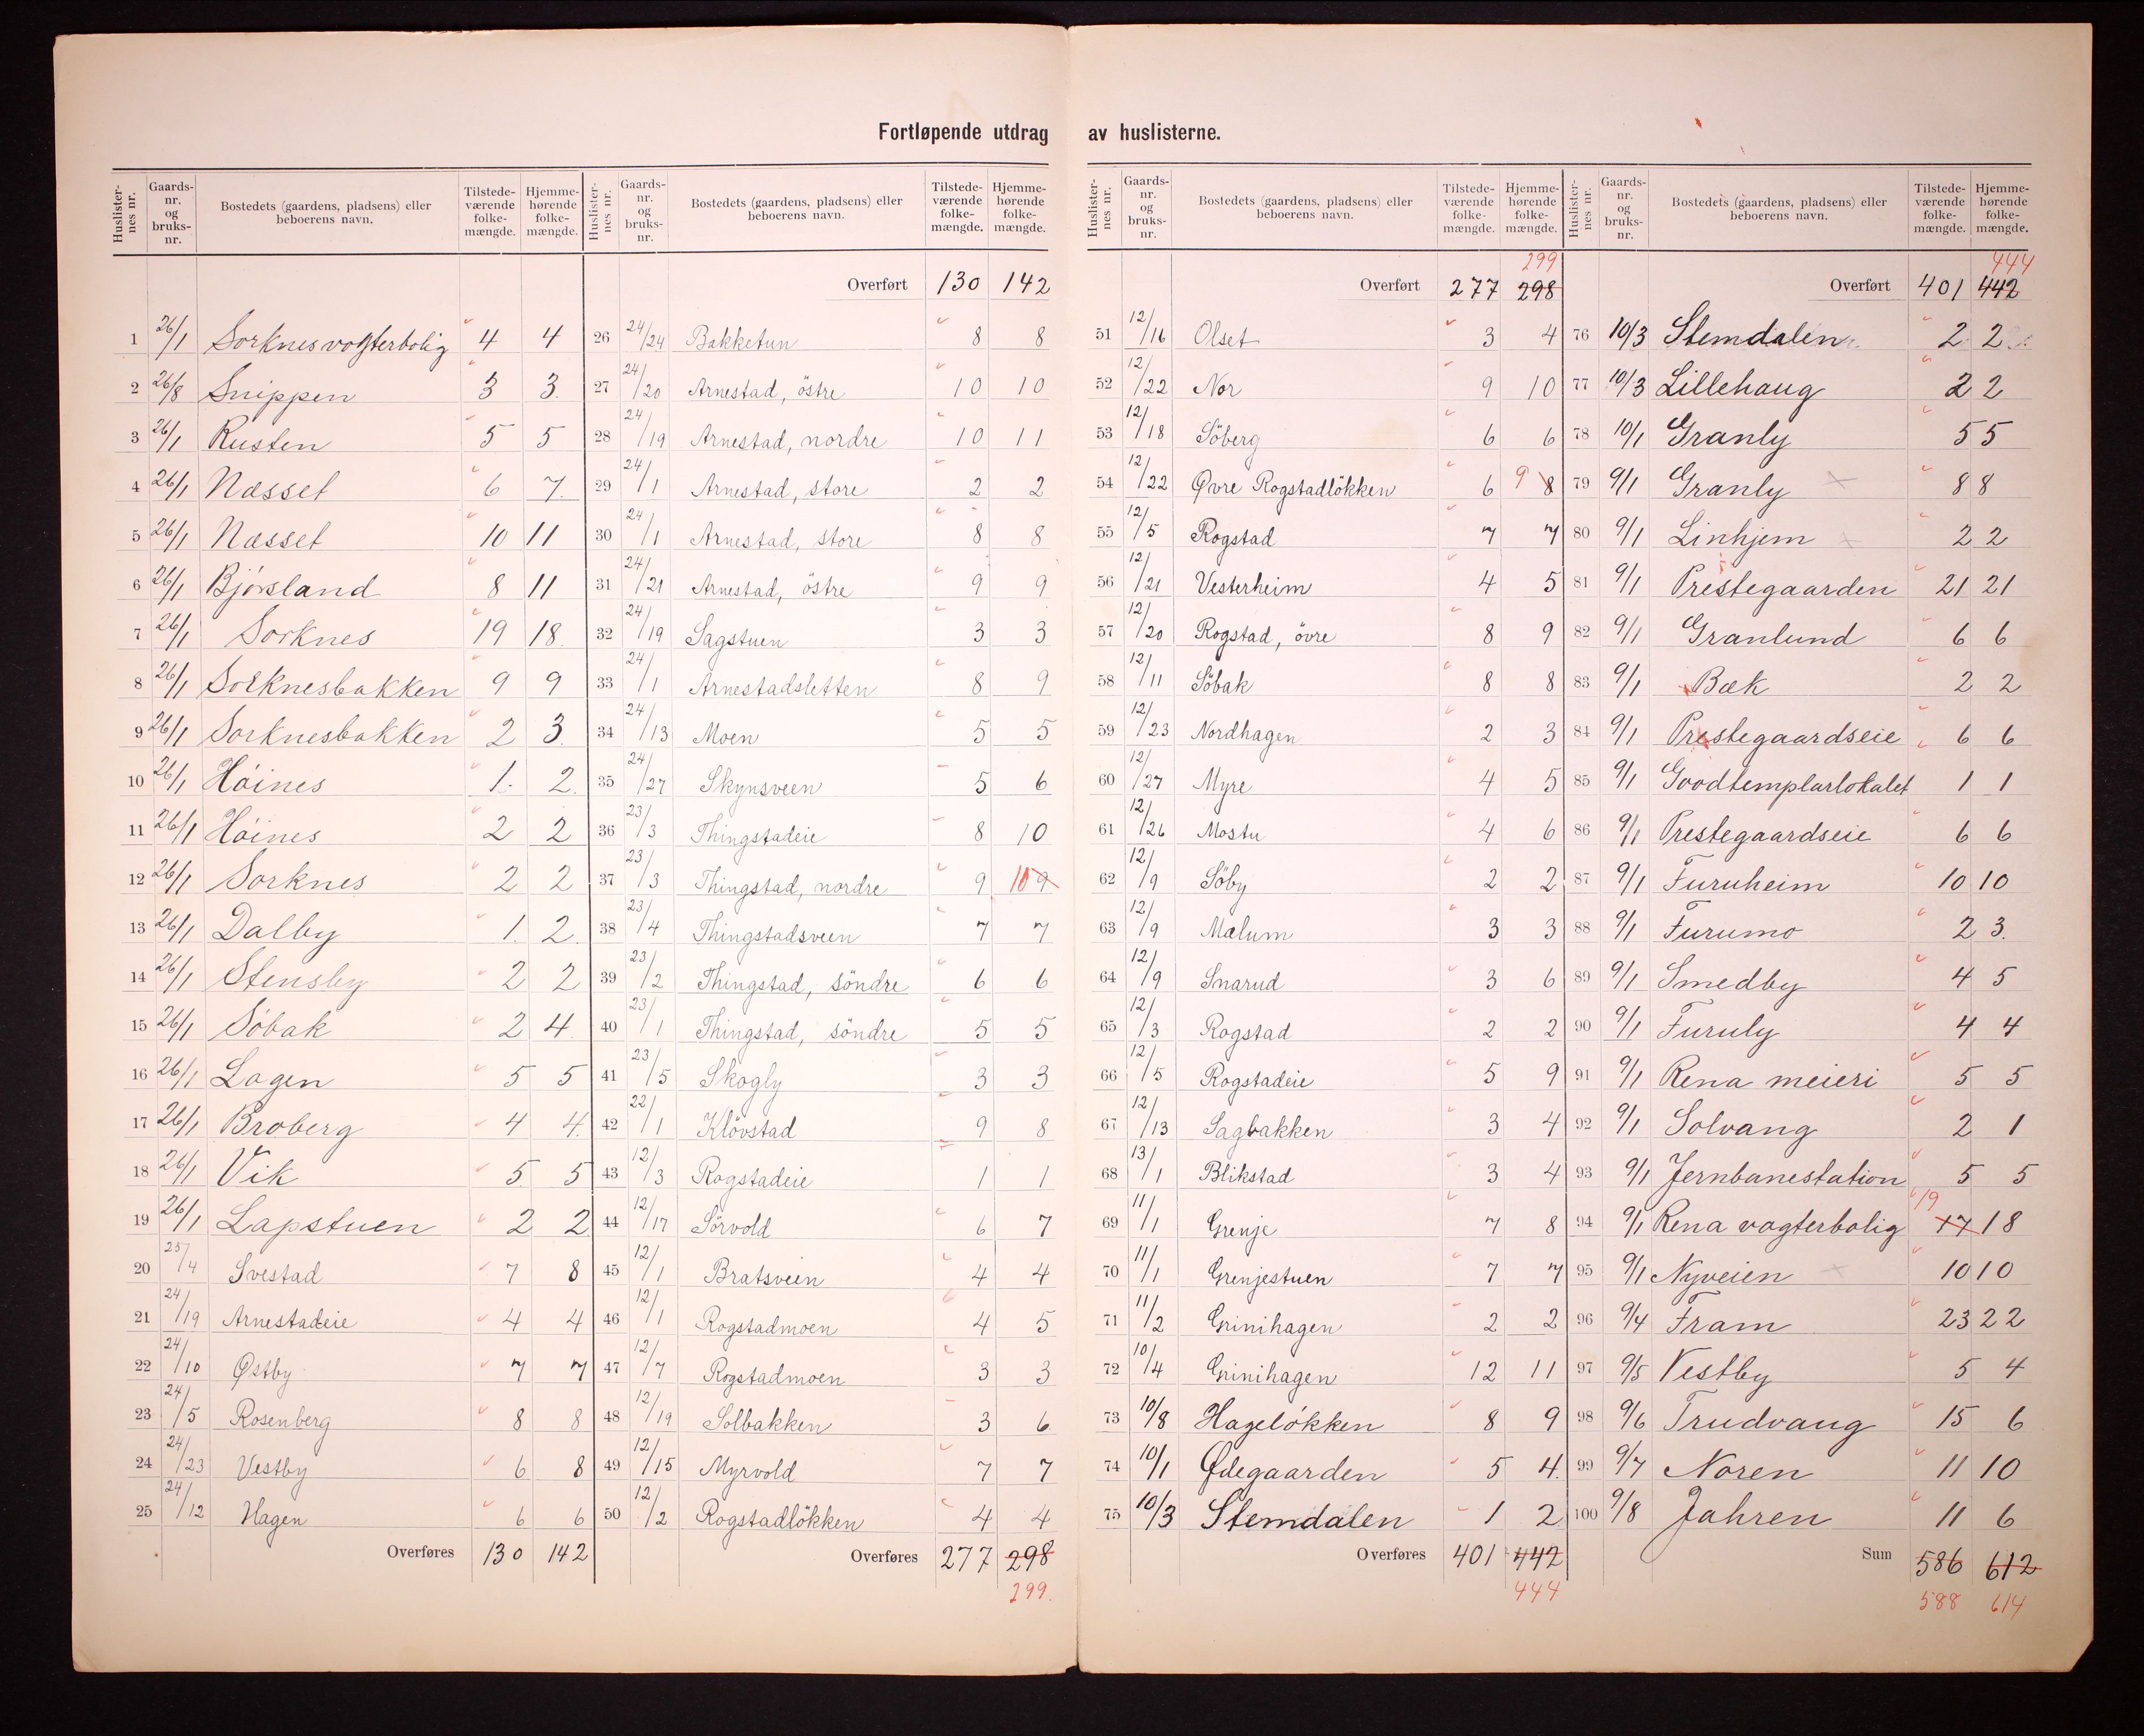 Fortløpende utdrag av huslisterne.
Huslister-nes nr. | Gaards-nr. og bruks-nr. | Bostedets (gaardens, pladsens) eller beboerens navn. | Tilstede-værende folke-mængde. | Hjemme-hørende folke-mængde.
1 26/1 Sorknes vogterbolig 4 4
2 26/8 Snippen 3 3.
3 26/1 Rusten 5 5
4 26/1 Næsset 6 7.
5 26/1 Næsset 10 11
6 26/1 Bjørsland 8 11
7 26/1 Sorknes 19 18.
8 26/1 Sorknesbakken 9 9
9 26/1 Sorknesbakken 2 3.
10 26/1 Høines 1. 2.
11 26/1 Høines 2 2
12 26/1 Sorknes 2 2
13 26/1 Dalby 1. 2.
14 26/1 Stensby 2 2
15 26/1 Søbak 2 4.
16 26/1 Lagen 5 5
17 26/1 Broberg 4 4.
18 26/1 Vik 5. 5
19 26/1 Lapstuen 2 2
20 25/4 Svestad 7 8
21 24/19 Arnestadeie 4 4
22 24/10 Østby 7 7
23 24/5 Rosenberg 8 8
24 24/23 Vestby 6 8
25 24/12 Hagen 6 6
Overføres 130 142
Huslister-nes nr. | Gaards-nr. og bruks-nr. | Bostedets (gaardens, pladsens) eller beboerens navn. | Tilstede-værende folke-mængde. | Hjemme-hørende folke-mængde.
Overført 130 142
26 24/24 Bakketun 8 8
27 24/20 Arnestad, östre 10 10
28 24/19 Arnestad, nordre 10 11
29 24/1 Arnestad, store 2 2
30 24/1 Arnestad, store 8 8
31 24/21 Arnestad, östre 9 9
32 24/19 Sagstuen 3 3
33 24/1 Arnestadsletten 8 9
34 24/13 Moen 5 5
35 24/27 Skynsveen 5 6
36 23/3 Thingstadeie 8 10
37 23/3 Thingstad, nordre 9 10 9
38 23/4 Thingstadsveen 7 7
39 23/2 Thingstad, söndre 6 6
40 23/1 Thingstad, söndre 5 5
41 23/5 Skogly 3 3
42 22/1 Klövstad 9 8
43 12/3 Rogstadeie 1 1
44 12/17 Sörvold 6 7
45 12/1 Bratsveen 4 4
46 12/1 Rogstadmoen 4 5
47 12/7 Rogstadmoen 3 3
48 12/19 Solbakken 3 6
49 12/15 Myrvold 7 7
50 12/2 Rogstadlökken 4 4
Overføres 277 298
299.
Huslister-nes nr. | Gaards-nr. og bruks-nr. | Bostedets (gaardens, pladsens) eller beboerens navn. | Tilstede-værende folke-mængde. | Hjemme-hørende folke-mængde.
299
Overført 277 298
51 12/16 Olset 3 4
52 12/22 Nor 9 10
53 12/18 Söberg 6 6
54 12/22 Øvre Rogstadlökken 6 9 8
55 12/5 Rogstad 7 7
56 12/21 Vesterheim 4 5
57 12/20 Rogstad, övre 8 9
58 12/11 Söbak 8 8
59 12/23 Nordhagen 2 3
60 12/27 Myre 4 5
61 12/26 Mostu 4 6
62 12/9 Söby 2 2
63 12/9 Mælum 3 3
64 12/9 Snarud 3 6
65 12/3 Rogstad 2 2
66 12/5 Rogstadeie 5 9
67 12/13 Sagbakken 3 4
68 13/1 Blikstad 3 4
69 11/1 Grenje 7 8
70 11/1 Grenjestuen 7 7
71 11/2 Grinihagen 2 2
72 10/4 Grinihagen 12 11
73 10/8 Hageløkken 8 9
74 10/1 Ødegaarden 5 4.
75 10/3 Stemdalen 1 2
Overføres 401 442
444
Huslister-nes nr. | Gaards-nr. og bruks-nr. | Bostedets (gaardens, pladsens) eller beboerens navn. | Tilstede-værende folke-mængde. | Hjemme-hørende folke-mængde.
444
Overført 401 442
76 10/3 Stemdalen 2 2
77 10/3 Lillehaug 2 2
78 10/1 Granly 5 5
79 9/1 Granly 8 8
80 9/1 Linhjem 2 2
81 9/1 Prestegaarden 21 21
82 9/1 Granlund 6 6
83 9/1 Bæk 2 2
84 9/1 Prestegaardseie 6 6
85 9/1 Goodtemplarlokalet 1 1
86 9/1 Prestegaardseie 6 6
87 9/1 Furuheim 10 10
88 9/1 Furumo 2 3.
89 9/1 Smedby 4 5
90 9/1 Furuly 4 4
91 9/1 Rena meieri 5 5
92 9/1 Solvang 2 1
93 9/1 Jernbanestation 5 5
94 9/1 Rena vogterbolig 19 17 18
95 9/1 Nyveien 10 10
96 9/4 Fram 23 22
97 9/5 Vestby 5 4
98 9/6 Trudvang 15 6
99 9/7 Noren 11 10
100 9/8 Jahren 11 6
Sum 586 612
588 614